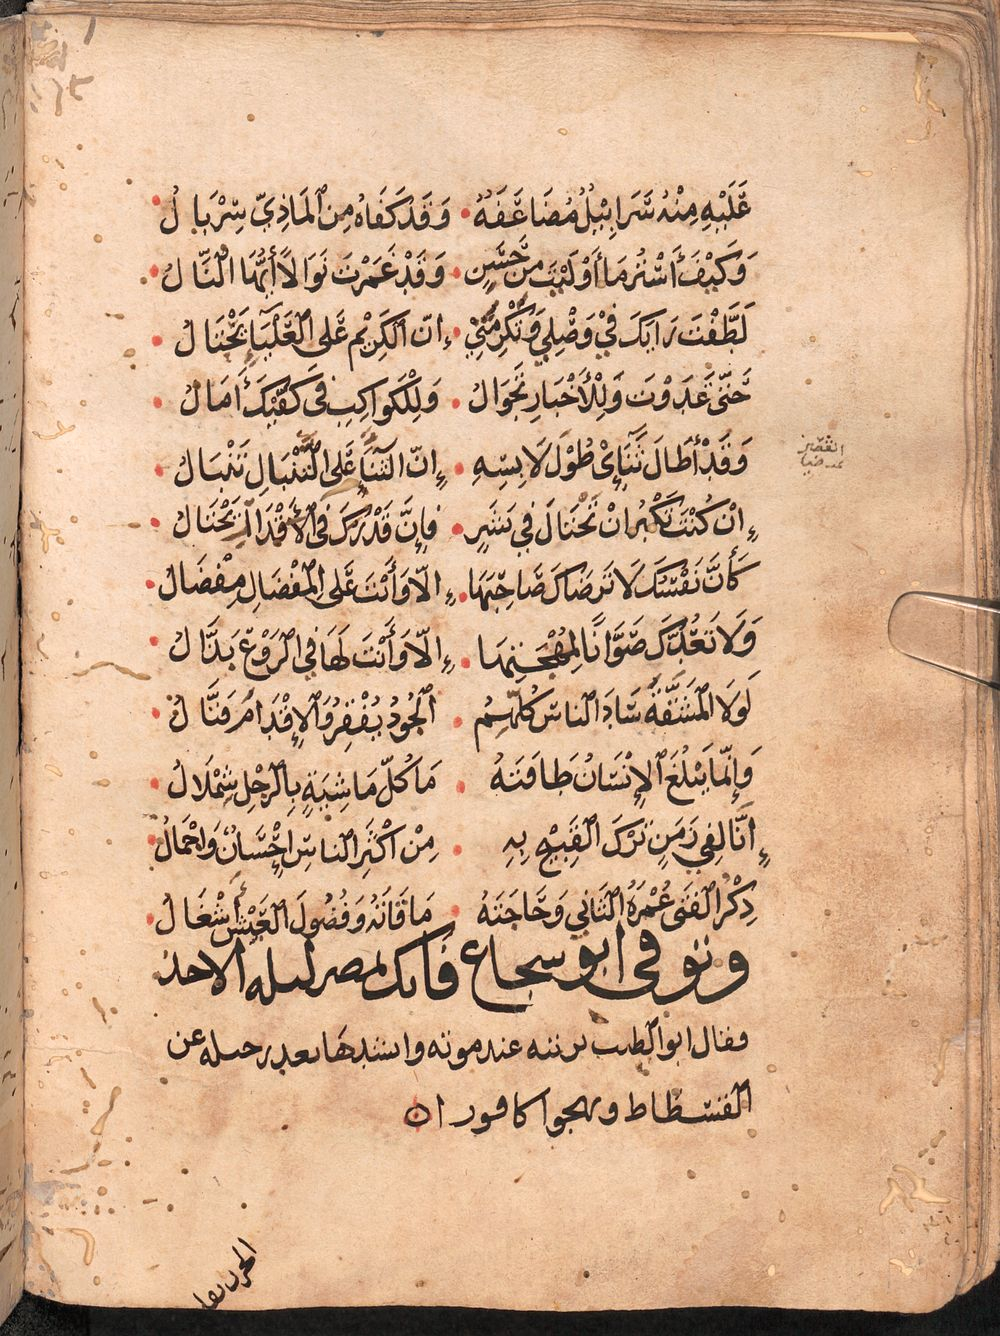 عَلَيْهِ مِنْهُ سَرَابِيْلٌ مُضَاعَفَةٌ وَقَدْ كَفَاهُ مِنَ الْمَاذِيِّ سِرْبَالُ
وَكَيْفَ أَسْتُرُ مَا أَوْلَيْتَ مِنْ حَسَنٍ وَقَدْ غَمَرْتَ نَوَالاً أَيُّهَا النَّالُ
لَطَّفْتَ رَايَكَ فِيْ وَصْلِي وَتَكْرِمَتِيْ إِنَّ الْكَرِيْمَ عَلَى الْعَلْيَاءِ يَحْتَالُ
حَتَّى غَدَوْتَ وَلِلْأَخْبَارِ تَجْوَالُ وَلِلْكَوَاكِبِ فِي كَفَّيْكَ أَمَالُ
وَقَدْ أَطَالَ ثَنَائِيْ طُوْلُ لَابِسِهِ إِنَّ الثَّنَاءَ عَلَى التِّنْبَالِ تِنْبَالُ
إِنْ كُنْتَ تَكْبُرُ انْ تَخْتَالَ فِي بَشَرٍ فَإِنَّ قَدْرَكَ فِي الْأَقْدَارِ يَخْتَالُ
كَأَنَّ نَفْسَكَ لَا تَرْضَاكَ صَاحِبَهَا إِلَّا وَأَنْتَ عَلَى الْمِفْضَالِ مِفْضَالُ
وَلَا تَعُدُّكَ صَوَّانًا لِمُهْجَتِهَا إِلَّا وَأَنْتَ لَهَا فِي الرَّوْعِ بَذَّالُ
لَوْلَا الْمَشَقَّةُ سَادَ النَّاسُ كُلُّهُمُ الْجُودُ يُفْقِرُ وَالْإِقْدَامُ قَتَّالُ
وَإِنَّمَا يَبْلُغُ الْإِنْسَانُ طَاقَتَهُ مَا كُلُّ مَاشِيَةٍ بِالرَّحْلِ شِمْلَالُ
إِنَّا لَفِي زَمَنٍ تَرْكُ الْقَبِيْحِ بِهِ مِنْ أَكْثَرِ النَّاسِ إِحْسَانٌ وَإِجْمَالُ
ذِكْرُ الْفَتَى عُمْرُهُ الثَّانِي وَحَاجَتُهُ مَا قَاتَهُ وَفُضُولُ الْعَيْشِ أَشْغَالُ
وتوفي ابو شجاع فاتك بمصر ليله الاحد
فقال ابو الطيب يرثيه عند موته وانشدها بعد رحيله عن
الفسطاط ويهجوا كافورا